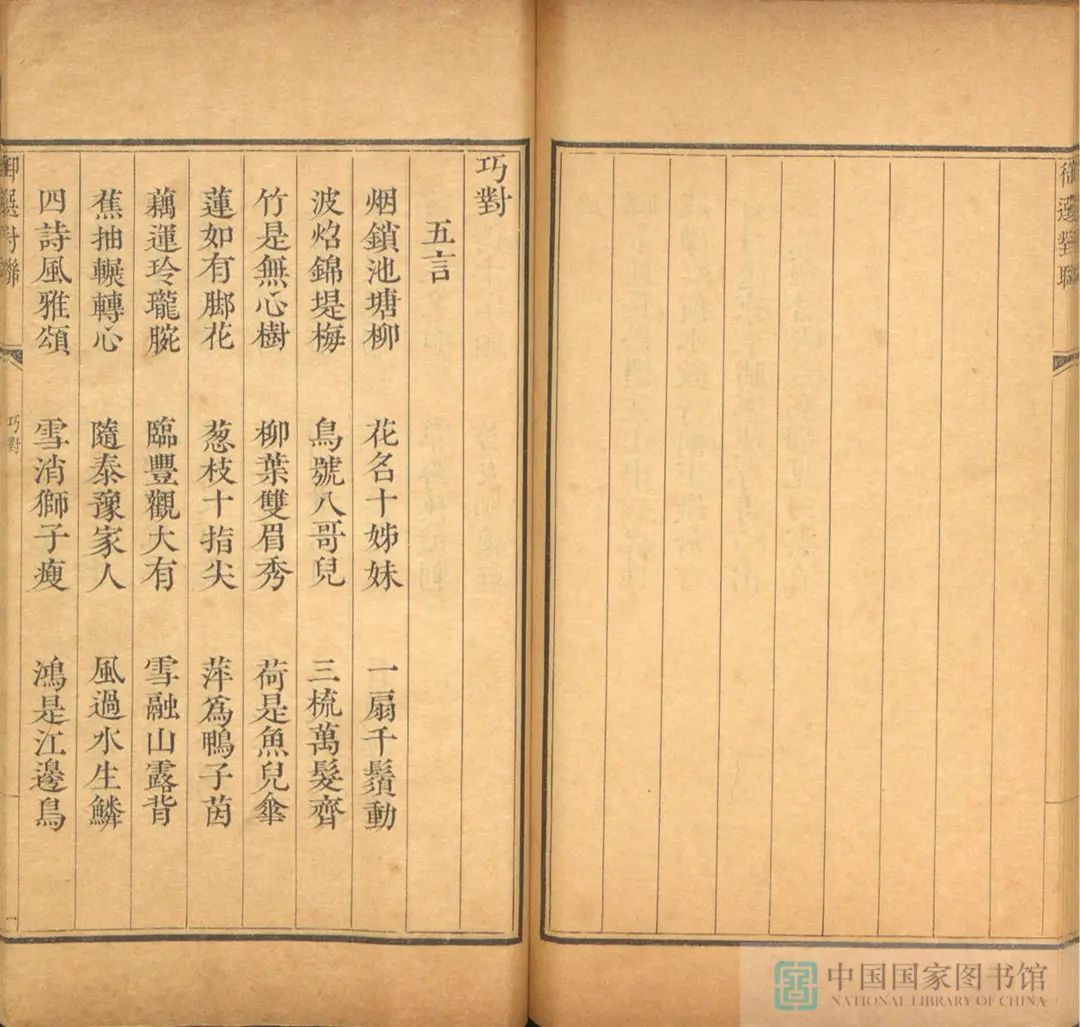 御選對聯
巧對
五言
烟鎖池塘柳 花名十姊妹 一扇千鬚動
波焰錦堤梅 鳥號八哥兒 三梳萬髮齊
竹是無心樹 柳葉雙眉秀 荷是魚兒傘
蓮如有脚花 葱枝十指尖 萍爲鴨子茵
藕運玲瓏腕 臨豐觀大有 雪融山露背
蕉抽輾轉心 隨泰豫家人 風過水生鱗
四詩風雅頌 雪消獅子瘦 鴻是江邊鳥
御選對聯 巧對 一
中国国家图书馆
NATIONAL LIBRARY OF CHINA